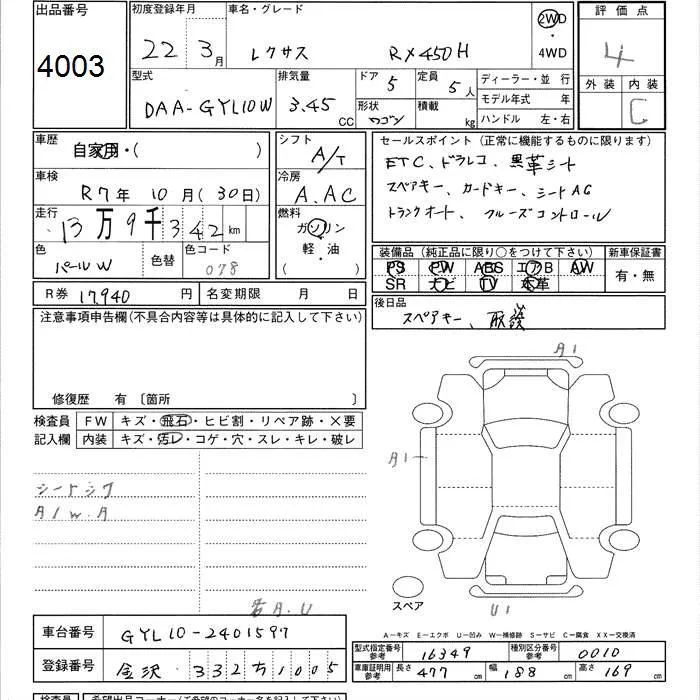 出品番号
4003
初度登録年月
22 3月
車名・グレード
レクサス RX450H
2WD
・
4WD
評価点
4
外装 内装
C
型式
DAA-GYL10W
排気量
3.45 CC
ドア 5
形状 ワゴン
定員 5人
積載 kg
ディーラー・並行
モデル年式 年
ハンドル 左・右
車歴
自家用・( )
車検
R7年 10月(30日)
走行
13万9千342km
色
パールW
色替
色コード
078
シフト
A/T
冷房
A.AC
燃料
ガソリン
軽・油
( )
セールスポイント(正常に機能するものに限ります)
ETC、ドラレコ、黒革シート
スペアキー、カードキー、シートAC
トランクオート、クルーズコントロール
装備品(純正品に限り○をつけて下さい)
PS PW ABS エアB AW
SR ナビ TV 本革
新車保証書
有・無
R券 17,940円
名変期限 月 日
後日品
スペアキー、取説
注意事項申告欄(不具合内容等は具体的に記入して下さい)
修復歴 有 〔箇所 〕
検査員
記入欄
FW キズ・飛石・ヒビ割・リペア跡・×要
内装 キズ・汚レ・コゲ・穴・スレ・キレ・破レ
シートシワ
A/W.A
A.U
A1
A1
U1
スペア
A-キズ E-エクボ U-凹み W-補修跡 S-サビ C-腐食 XX-交換済
車台番号 GYL10-2401597
登録番号 金沢 332ち1005
型式指定番号
参考
16349
種別区分番号
参考
0010
車庫証明用
参考
長さ 477cm
幅 188cm
高さ 169cm
検査員
希望出品コーナー(ご希望のコーナー名をご記入下さい)